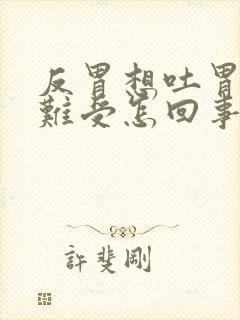 反胃想吐胃
難受怎回事
許斐剛